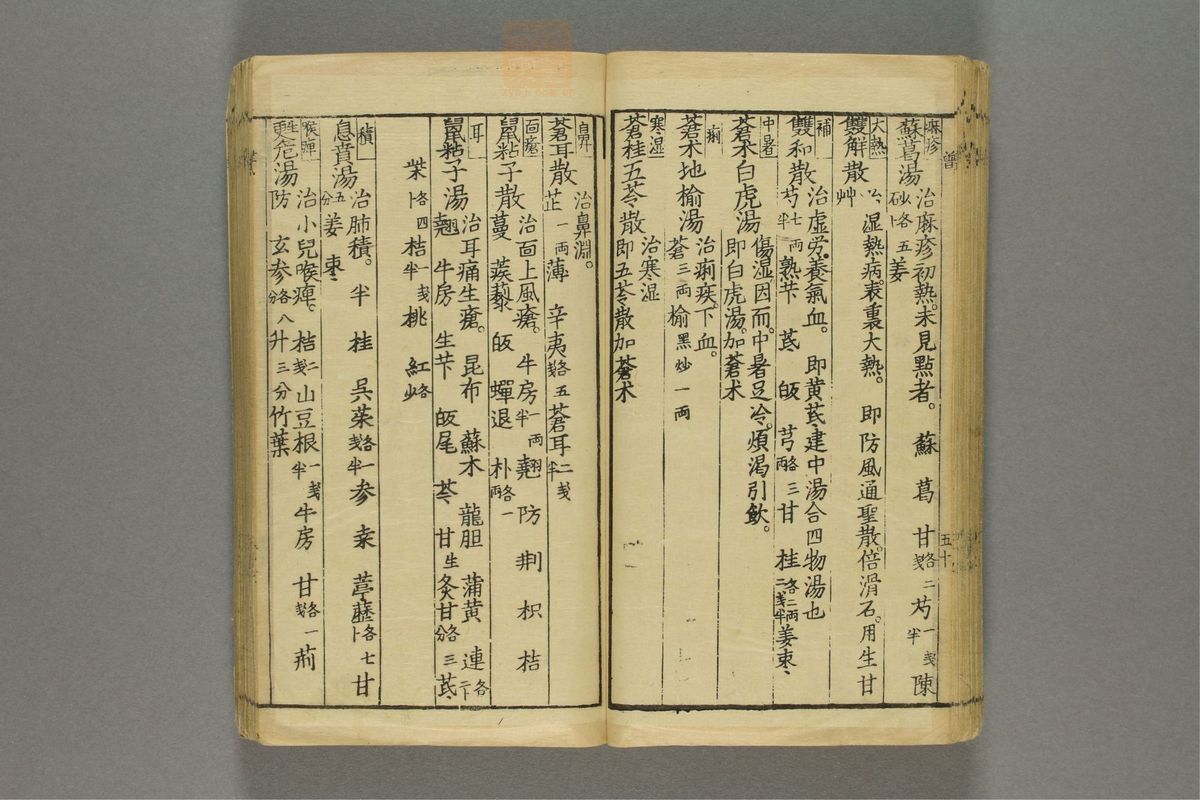 麻疹
蘇葛湯 治麻疹初熱。未見點者。 蘇 葛 甘各二戔 芍一戔半 陳
砂各五卜 姜
大熱
雙解散 治湿熱病。表裏大熱。 即防風通聖散。倍滑石。用生甘
艸
補
雙和散 治虚労。養氣血。 即黄芪建中湯合四物湯也
芍七両半 熟芐 芪 皈 芎各両 三甘 桂各二両二戔半 姜枣
中暑
蒼朮白虎湯 傷湿。因而。中暑足冷。煩渇引飲。
即白虎湯。加蒼朮
痢
蒼朮地楡湯 治痢疾。下血。
蒼三両 楡黑炒一両
寒湿
蒼桂五苓散 治寒湿
即五苓散加蒼朮
五十
鼻
蒼耳散 治鼻淵。
芷一両 薄 辛夷各五戔 蒼耳二戔半
面瘡
鼠粘子散 治面上風瘡。 牛房一両半 翹 防 荆 枳 桔
蔓 蒺藜 皈 蟬退 朴各一両
耳
鼠粘子湯 治耳痛生瘡。 昆布 蘇木 龍胆 蒲黄 連各二卜
翹 牛房 生芐 皈尾 芩 甘生 炙甘各三分 芪
柴各四卜 桔一戔半 桃 紅各少
積
息賁湯 治肺積。 半 桂 呉茱各一戔半 参 桒 葶藶各七卜 甘
五分 姜 枣
喉痺
甦危湯 治小兒喉痺。 桔二戔 山豆根一戔半 牛房 甘各一戔 荊
防 玄参各八分 升三分 竹葉